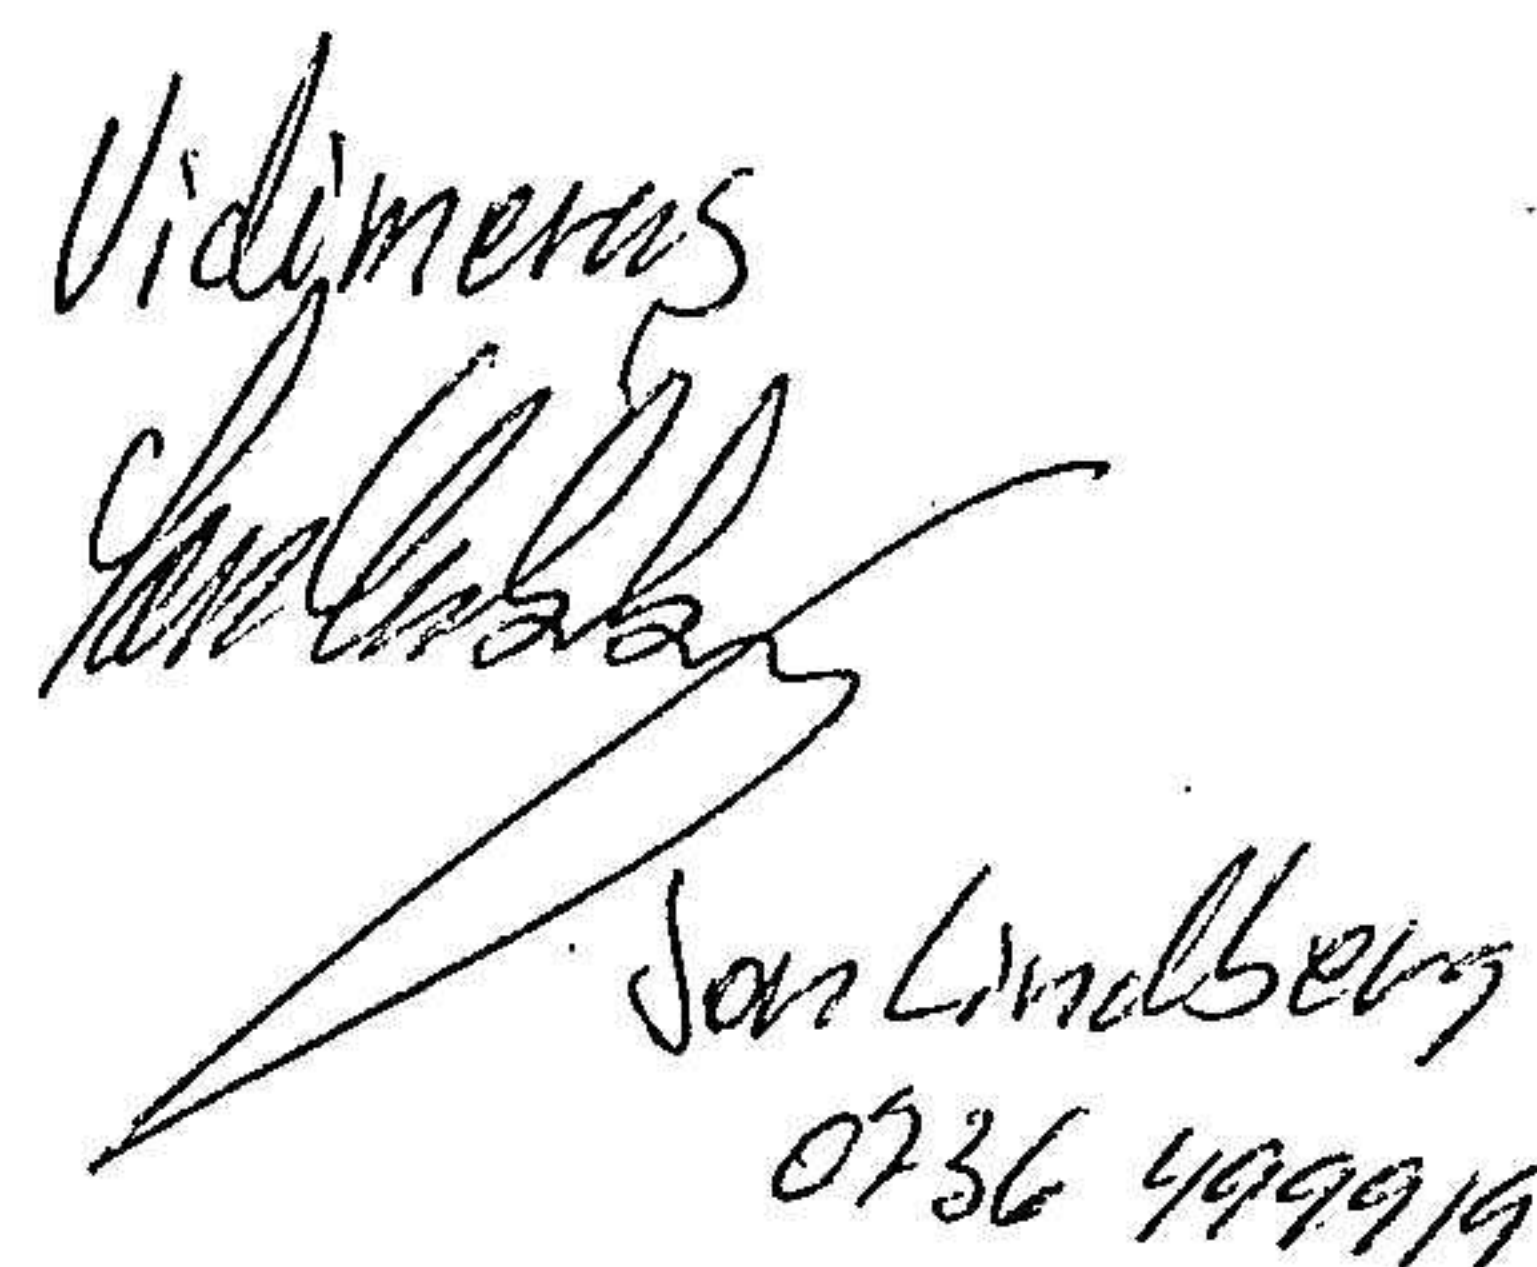 Vidimeras
Jon Lindberg
0736 499919